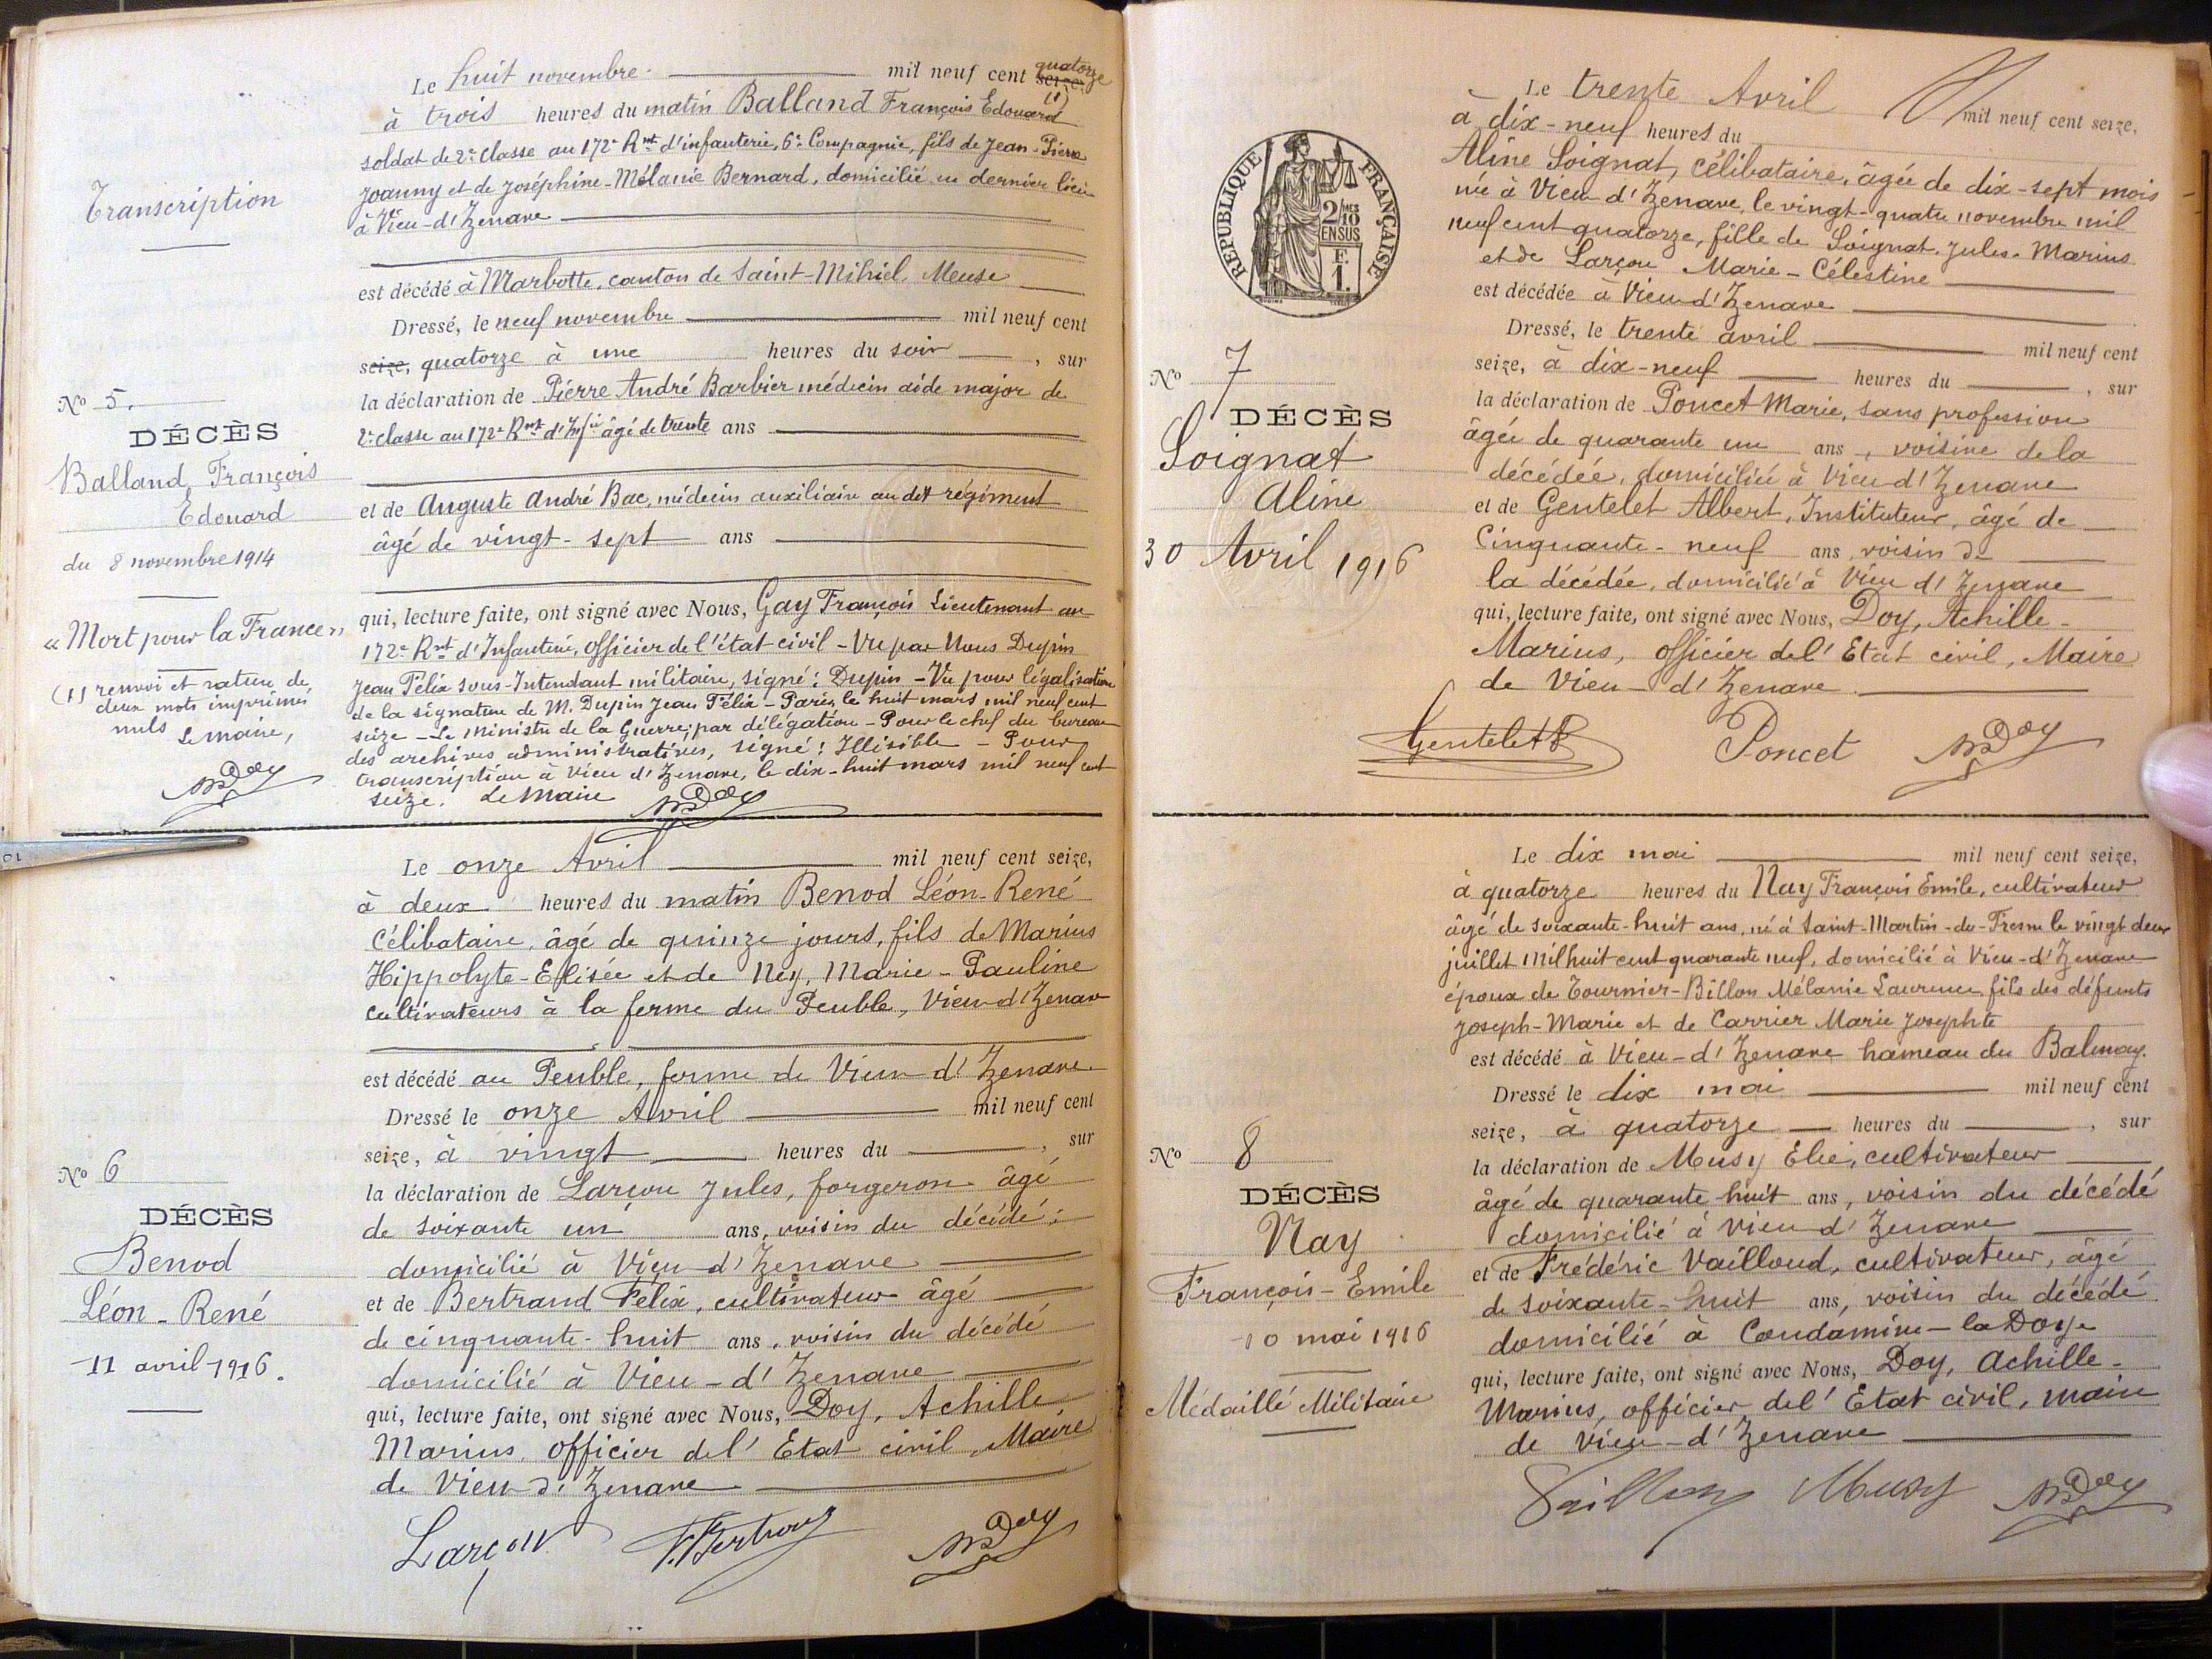 Transcription
Le huit novembre mil neuf cent seize quatorze (1)
à trois heures du matin Balland François Edouard
soldat de 2e classe au 172e Rmt d'infanterie, 6e Compagnie, fils de Jean-Pierre
Joanny et de Joséphine-Mélanie Bernard, domicilié en dernier lieu
à Vieu-d'Izenave
est décédé à Marbotte, canton de Saint-Mihiel, Meuse
Dressé, le neuf novembre mil neuf cent
seize, quatorze à une heures du soir, sur
la déclaration de Pierre André Barbier médecin aide major de
2e classe au 172e Rmt d'Infie âgé de trente ans
et de Auguste André Bac, médecin auxiliaire au dit régiment
âgé de vingt-sept ans
qui, lecture faite, ont signé avec Nous, Gay François Lieutenant au
172e Rmt d'Infanterie, officier de l'état-civil - Vu par Nous Dupin
Jean Félix sous-Intendant militaire, signé : Dupin - Vu pour légalisation
de la signature de M. Dupin Jean Félix - Paris, le huit mars mil neuf cent
seize - Le Ministre de la Guerre, par délégation - Pour le chef du bureau
des archives administratives, signé : Illisible - Pour
transcription à Vieu d'Izenave, le dix-huit mars mil neuf cent
seize. Le Maire MDoy
No 5.
DÉCÈS
Balland, François
Edouard
du 8 novembre 1914
« Mort pour la France »
(1) renvoi et rature de
deux mots imprimés
nuls
Le maire,
MDoy
Le onze Avril mil neuf cent seize,
à deux heures du matin Benod Léon-René
célibataire, âgé de quinze jours, fils de Marius
Hippolyte-Elisée et de Ney, Marie-Pauline
cultivateurs à la ferme du Peuble, Vieu d'Izenave
est décédé au Peuble, ferme de Vieu d'Izenave
Dressé le onze Avril mil neuf cent
seize, à vingt heures du , sur
la déclaration de Larçon Jules, forgeron âgé
de soixante un ans, voisin du décédé,
domicilié à Vieu d'Izenave
et de Bertrand Félix, cultivateur âgé
de cinquante-huit ans, voisin du décédé
domicilié à Vieu-d'Izenave
qui, lecture faite, ont signé avec Nous, Doy, Achille
Marius, officier de l'Etat civil, Maire
de Vieu d'Izenave
Larçon F. Bertrand MDoy
No 6
DÉCÈS
Benod
Léon-René
11 avril 1916.
RÉPUBLIQUE FRANÇAISE
2/10MES
EN SUS
F.
1.
Le trente Avril mil neuf cent seize,
à dix-neuf heures du
Aline Soignat, célibataire, âgée de dix-sept mois
née à Vieu d'Izenave, le vingt-quatre novembre mil
neuf cent quatorze, fille de Soignat, Jules-Marius
et de Larçon Marie-Célestine
est décédée à Vieu d'Izenave
Dressé, le trente avril mil neuf cent
seize, à dix-neuf heures du , sur
la déclaration de Poncet Marie, sans profession
âgée de quarante un ans, voisine de la
décédée, domiciliée à Vieu d'Izenave
et de Gentelet Albert, Instituteur, âgé de
Cinquante-neuf ans, voisin de
la décédée, domicilié à Vieu d'Izenave
qui, lecture faite, ont signé avec Nous, Doy, Achille-
Marius, officier de l'Etat civil, Maire
de Vieu-d'Izenave
Gentelet Poncet MDoy
No 7
DÉCÈS
Soignat
Aline
30 Avril 1916
Le dix mai mil neuf cent seize,
à quatorze heures du Nay François Emile, cultivateur
âgé de soixante-huit ans, né à Saint-Martin-du-Fresne le vingt deux
juillet mil huit cent quarante neuf, domicilié à Vieu-d'Izenave
époux de Tournier-Billon Mélanie Laurence, fils des défunts
Joseph-Marie et de Carrier Marie Josephte
est décédé à Vieu-d'Izenave hameau du Balmay.
Dressé le dix mai mil neuf cent
seize, à quatorze heures du , sur
la déclaration de Musy Elie, cultivateur
âgé de quarante-huit ans, voisin du décédé
domicilié à Vieu d'Izenave
et de Frédéric Vailloud, cultivateur, âgé
de soixante-huit ans, voisin du décédé
domicilié à Condamine-la Doye
qui, lecture faite, ont signé avec Nous, Doy, Achille-
Marius, officier de l'Etat civil, maire
de Vieu-d'Izenave
Musy MDoy
No 8
DÉCÈS
Nay
François-Emile
10 mai 1916
Médaillé Militaire